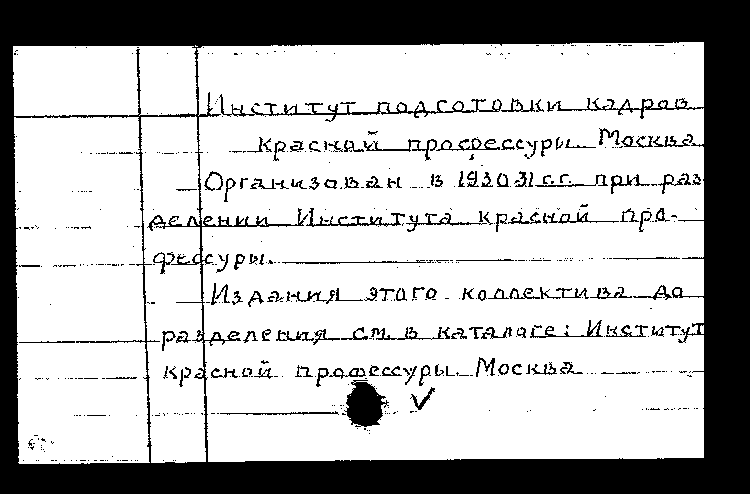 Институт подготовки кадров
красной профессуры. Москва
Организован в 1930 31 г.г. при раз
делении Института красной про-
фессуры.
Издания этого коллектива до
разделения см. в каталоге: Институт
красной профессуры. Москва